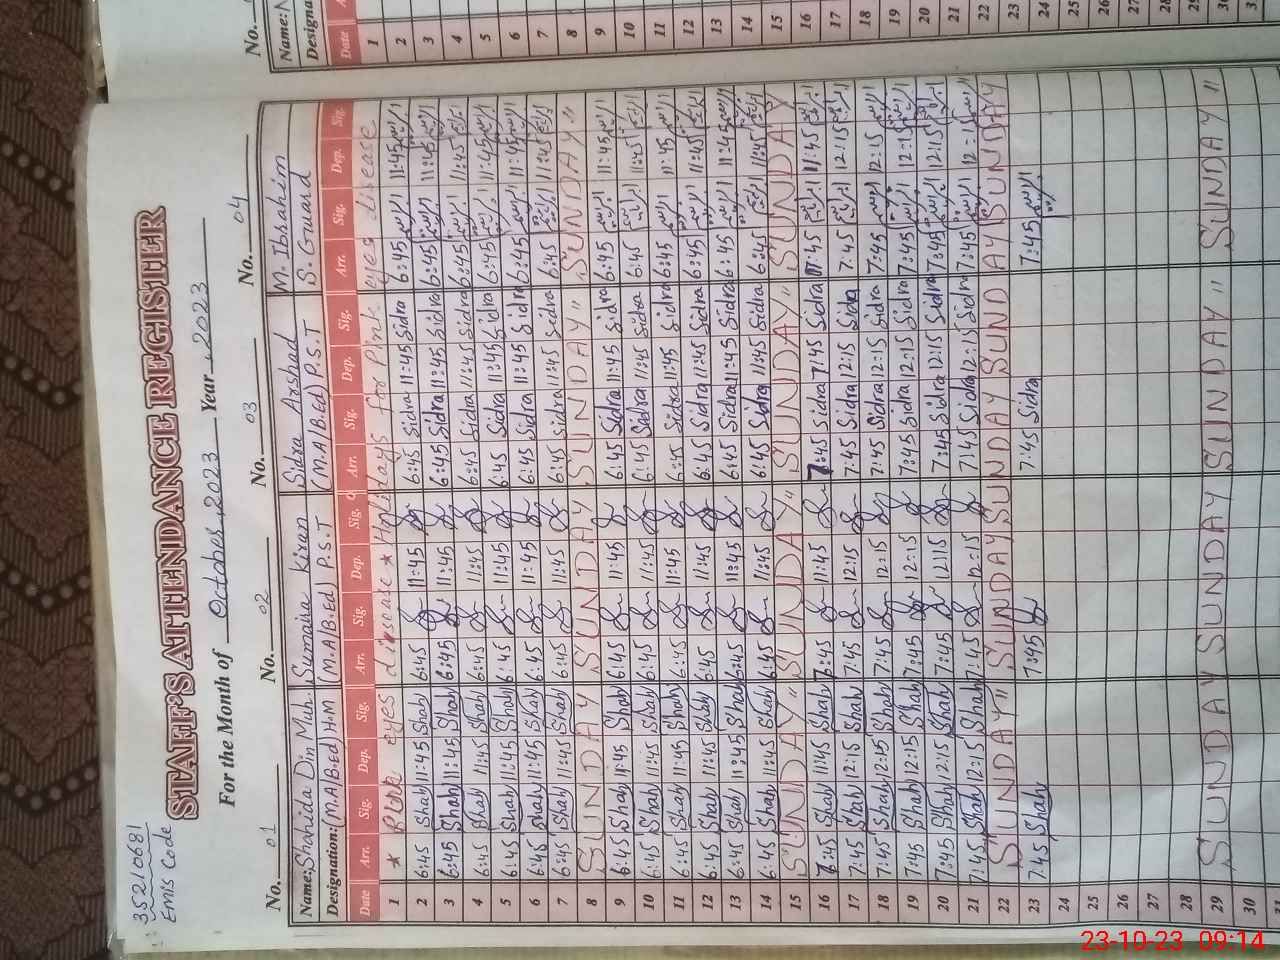 35210681
EMIS Code
STAFF'S ATTENDANCE REGISTER
For the Month of October, 2023 Year, 2023
No. 01 No. 02 No. 03 No. 04
Name: Shahida Din Muh. Sumaira Kiran Sidra Arshad M. Ibrahim
Designation: (M.A/B.Ed) H.M (M.A/B.Ed) P.S.T (M.A/B.Ed) P.S.T S. Guard
Date Arr. Sig. Dep. Sig. Arr. Sig. Dep. Sig. Arr. Sig. Dep. Sig. Arr. Sig. Dep. Sig.
1 * Pink eyes disease * Holidays for Pink eyes disease
2 6:45 Shah 11:45 Shah 6:45 11:45 6:45 Sidra 11:45 Sidra 6:45 11:45
3 6:45 Shah 11:45 Shah 6:45 11:45 6:45 Sidra 11:45 Sidra 6:45 11:45
4 6:45 Shah 11:45 Shah 6:45 11:45 6:45 Sidra 11:45 Sidra 6:45 11:45
5 6:45 Shah 11:45 Shah 6:45 11:45 6:45 Sidra 11:45 Sidra 6:45 11:45
6 6:45 Shah 11:45 Shah 6:45 11:45 6:45 Sidra 11:45 Sidra 6:45 11:45
7 6:45 Shah 11:45 Shah 6:45 11:45 6:45 Sidra 11:45 Sidra 6:45 11:45
8 SUNDAY SUNDAY SUNDAY" SUNDAY"
9 6:45 Shah 11:45 Shah 6:45 11:45 6:45 Sidra 11:45 Sidra 6:45 11:45
10 6:45 Shah 11:45 Shah 6:45 11:45 6:45 Sidra 11:45 Sidra 6:45 11:45
11 6:45 Shah 11:45 Shah 6:45 11:45 6:45 Sidra 11:45 Sidra 6:45 11:45
12 6:45 Shah 11:45 Shah 6:45 11:45 6:45 Sidra 11:45 Sidra 6:45 11:45
13 6:45 Shah 11:45 Shah 6:45 11:45 6:45 Sidra 11:45 Sidra 6:45 11:45
14 6:45 Shah 11:45 Shah 6:45 11:45 6:45 Sidra 11:45 Sidra 6:45 11:45
15 SUNDAY" SUNDAY" SUNDAY" SUNDAY
16 7:45 Shah 11:45 Shah 7:45 11:45 7:45 Sidra 7:45 Sidra 7:45 11:45
17 7:45 Shah 12:15 Shah 7:45 12:15 7:45 Sidra 12:15 Sidra 7:45 12:15
18 7:45 Shah 12:15 Shah 7:45 12:15 7:45 Sidra 12:15 Sidra 7:45 12:15
19 7:45 Shah 12:15 Shah 7:45 12:15 7:45 Sidra 12:15 Sidra 7:45 12:15
20 7:45 Shah 12:15 Shah 7:45 12:15 7:45 Sidra 12:15 Sidra 7:45 12:15
21 7:45 Shah 12:15 Shah 7:45 12:15 7:45 Sidra 12:15 Sidra 7:45 12:15
22 SUNDAY" SUNDAY SUNDAY SUNDAY SUNDAY
23 7:45 Shah 7:45 7:45 Sidra 7:45
24
25
26
27
28
29 SUNDAY SUNDAY SUNDAY" SUNDAY"
30
31
No.
Name:
Date
1
2
3
4
5
6
7
8
9
10
11
12
13
14
15
16
17
18
19
20
21
22
23
24
25
26
27
28
29
30
31
23-10-23 09:14